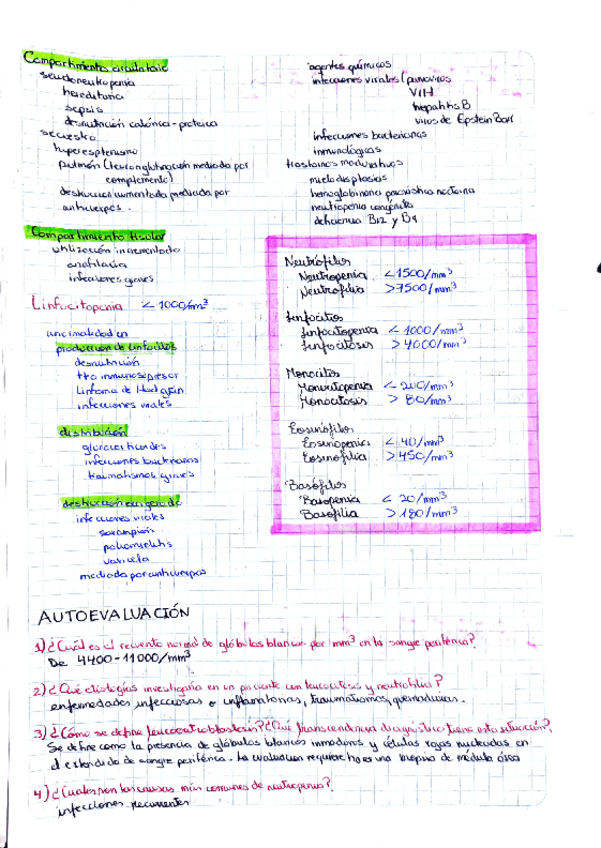 Compartimiento circulatorio
seudoneutropenia
hereditaria
sepsis
desnutrición calórica-proteica
secuestro
hiperesplenismo
pulmón (leucoaglutinación mediada por
complemento)
destrucción aumentada mediada por
anticuerpos.
Compartimiento tisular
utilización incrementada
anafilaxia
infecciones graves
Linfocitopenia < 1000/mm³
anormalidad en
producción de linfocitos
desnutrición
tto inmunosupresor
Linfoma de Hodgkin
infecciones virales
distribución
glucocorticoides
infecciones bacterianas
traumatismos graves
destrucción exagerada
infecciones virales
sarampión
poliomielitis
varicela
mediada por anticuerpos
agentes químicos
infecciones virales (parvovirus
VIH
hepatitis B
virus de Epstein Barr
infecciones bacterianas
inmunológicas
trastornos madurativos
mielodisplasias
hemoglobinuria paroxística nocturna
neutropenia congénita
deficiencia B12 y B9
Neutrófilos
Neutropenia <1500/mm³
Neutrofilia >7500/mm³
Linfocitos
Linfocitopenia < 1000/mm³
Linfocitosis > 4000/mm³
Monocitos
Monocitopenia < 200/mm³
Monocitosis > 80/mm³
Eosinófilos
Eosinopenia < 40/mm³
Eosinofilia >450/mm³
Basófilos
Basopenia < 20/mm³
Basofilia > 180/mm³
AUTOEVALUACIÓN
1) ¿Cuál es el recuento normal de glóbulos blancos por mm³ en la sangre periférica?
De 4400-11000/mm³
2) ¿Qué etiologías investigaría en un paciente con leucocitosis y neutrofilia?
enfermedades infecciosas o inflamatorias, traumatismos, quemaduras.
3) ¿Cómo se define leucoeritroblastosis? ¿Qué transcendencia diagnóstica tiene esta situación?
Se define como la presencia de glóbulos blancos inmaduros y células rojas nucleadas en
el extendido de sangre periférica. La evaluación requiere hacer una biopsia de médula ósea
4) ¿Cuáles son las causas más comunes de neutropenia?
infecciones recurrentes